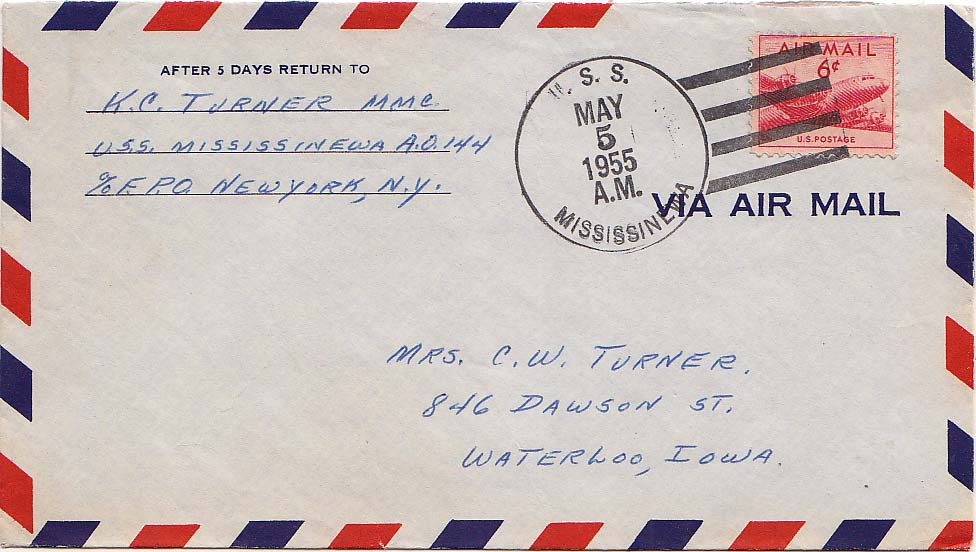 AFTER 5 DAYS RETURN TO
K.C. TURNER MMC.
U.S.S. MISSISSINEWA A.O. 144
℅ F.P.O. NEW YORK, N.Y.
U. S. S.
MAY
5
1955
A.M.
MISSISSINEWA
AIR MAIL
6¢
U.S. POSTAGE
VIA AIR MAIL
MRS. C.W. TURNER.
846 DAWSON ST.
WATERLOO, IOWA.